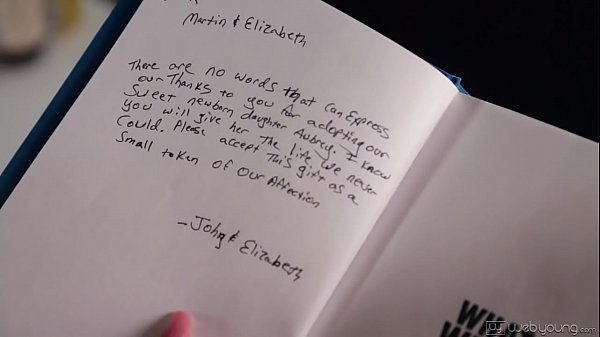 Martin & Elizabeth
There are no words that can express
our Thanks to you for adopting our
Sweet newborn daughter Aubrey. I know
you will give her The life we never
Could. Please accept This gift as a
Small token of our Affection
- John & Elizabeth
webyoung.com